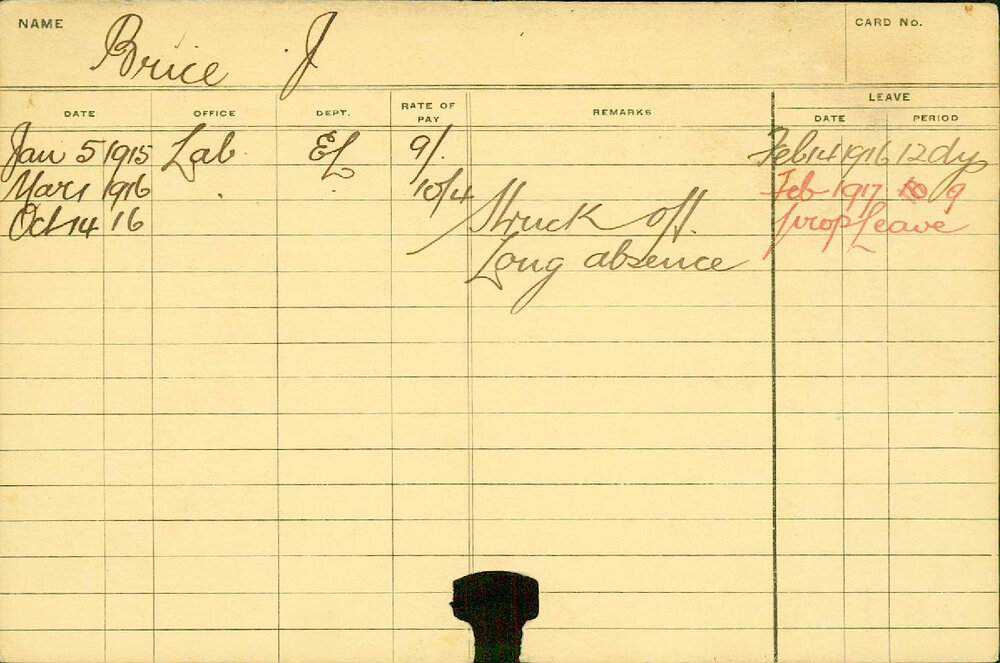 NAME Brice J CARD No.
DATE OFFICE DEPT. RATE OF PAY REMARKS LEAVE DATE PERIOD
Jan 5 1915 Lab EL 9/. Feb 14 1916 12 dys
Mar 1 1916 . . 10/4 Feb 1917 9
Oct 14 16 Struck off. prop Leave
Long absence